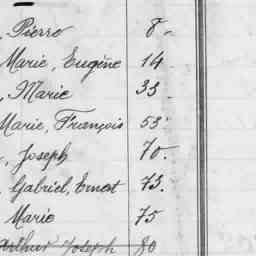 , Pierre 8 -
Marie, Eugène 14 -
, Marie 33 -
Marie, François 53 -
, Joseph 70 -
, Gabriel, Ernest 73 -
Marie 75
Arthur Joseph 80